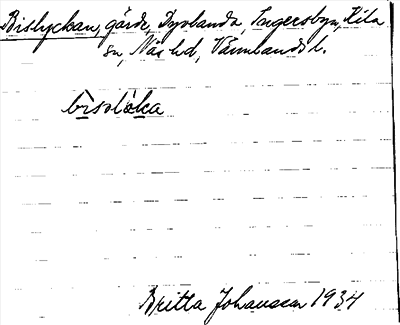 Bislyckan, gärde, Dyvlanda, Ingersbyn, Kila
sn, Näs hd, Värmlands l.
bìsolò̤ka
Britta Johansson 1934